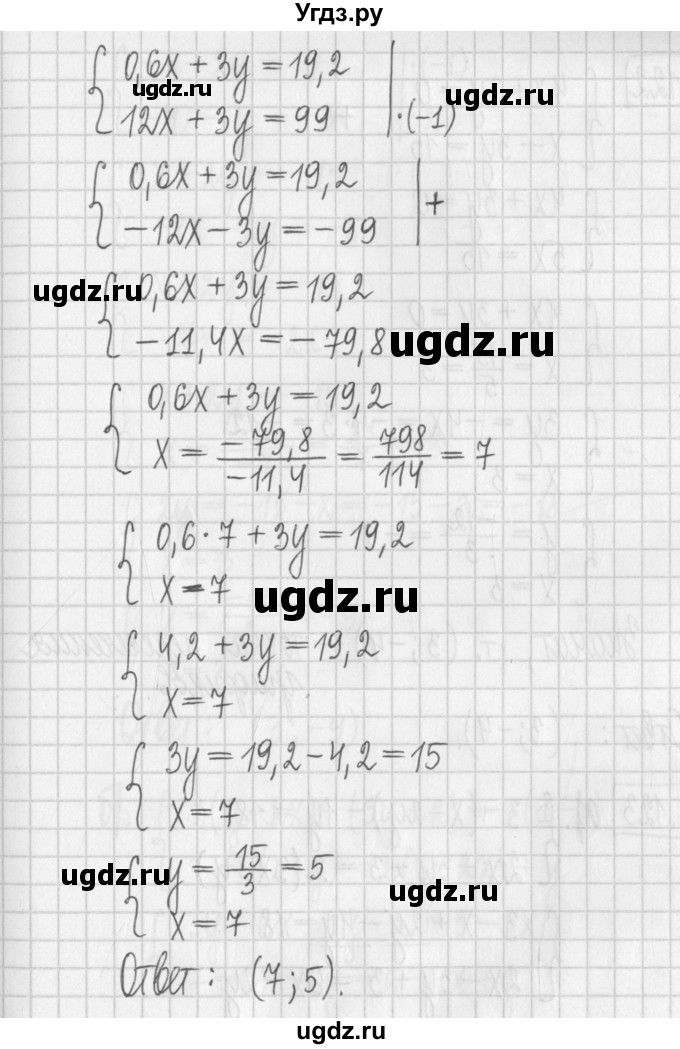 Угдз.ру
0,6x + 3y = 19,2
ugdz.ru
ugdz.ru
12x + 3y = 99 | ·(-1)
0,6x + 3y = 19,2
-12x - 3y = -99 | +
ugdz.ru
0,6x + 3y = 19,2
-11,4x = -79,8
ugdz.ru
0,6x + 3y = 19,2
x = -79,8/-11,4 = 798/114 = 7
0,6 · 7 + 3y = 19,2
x = 7
ugdz.ru
4,2 + 3y = 19,2
x = 7
3y = 19,2 - 4,2 = 15
x = 7
ugdz.ru
y = 15/3 = 5
ugdz.ru
x = 7
Ответ: (7; 5).
ugdz.ru